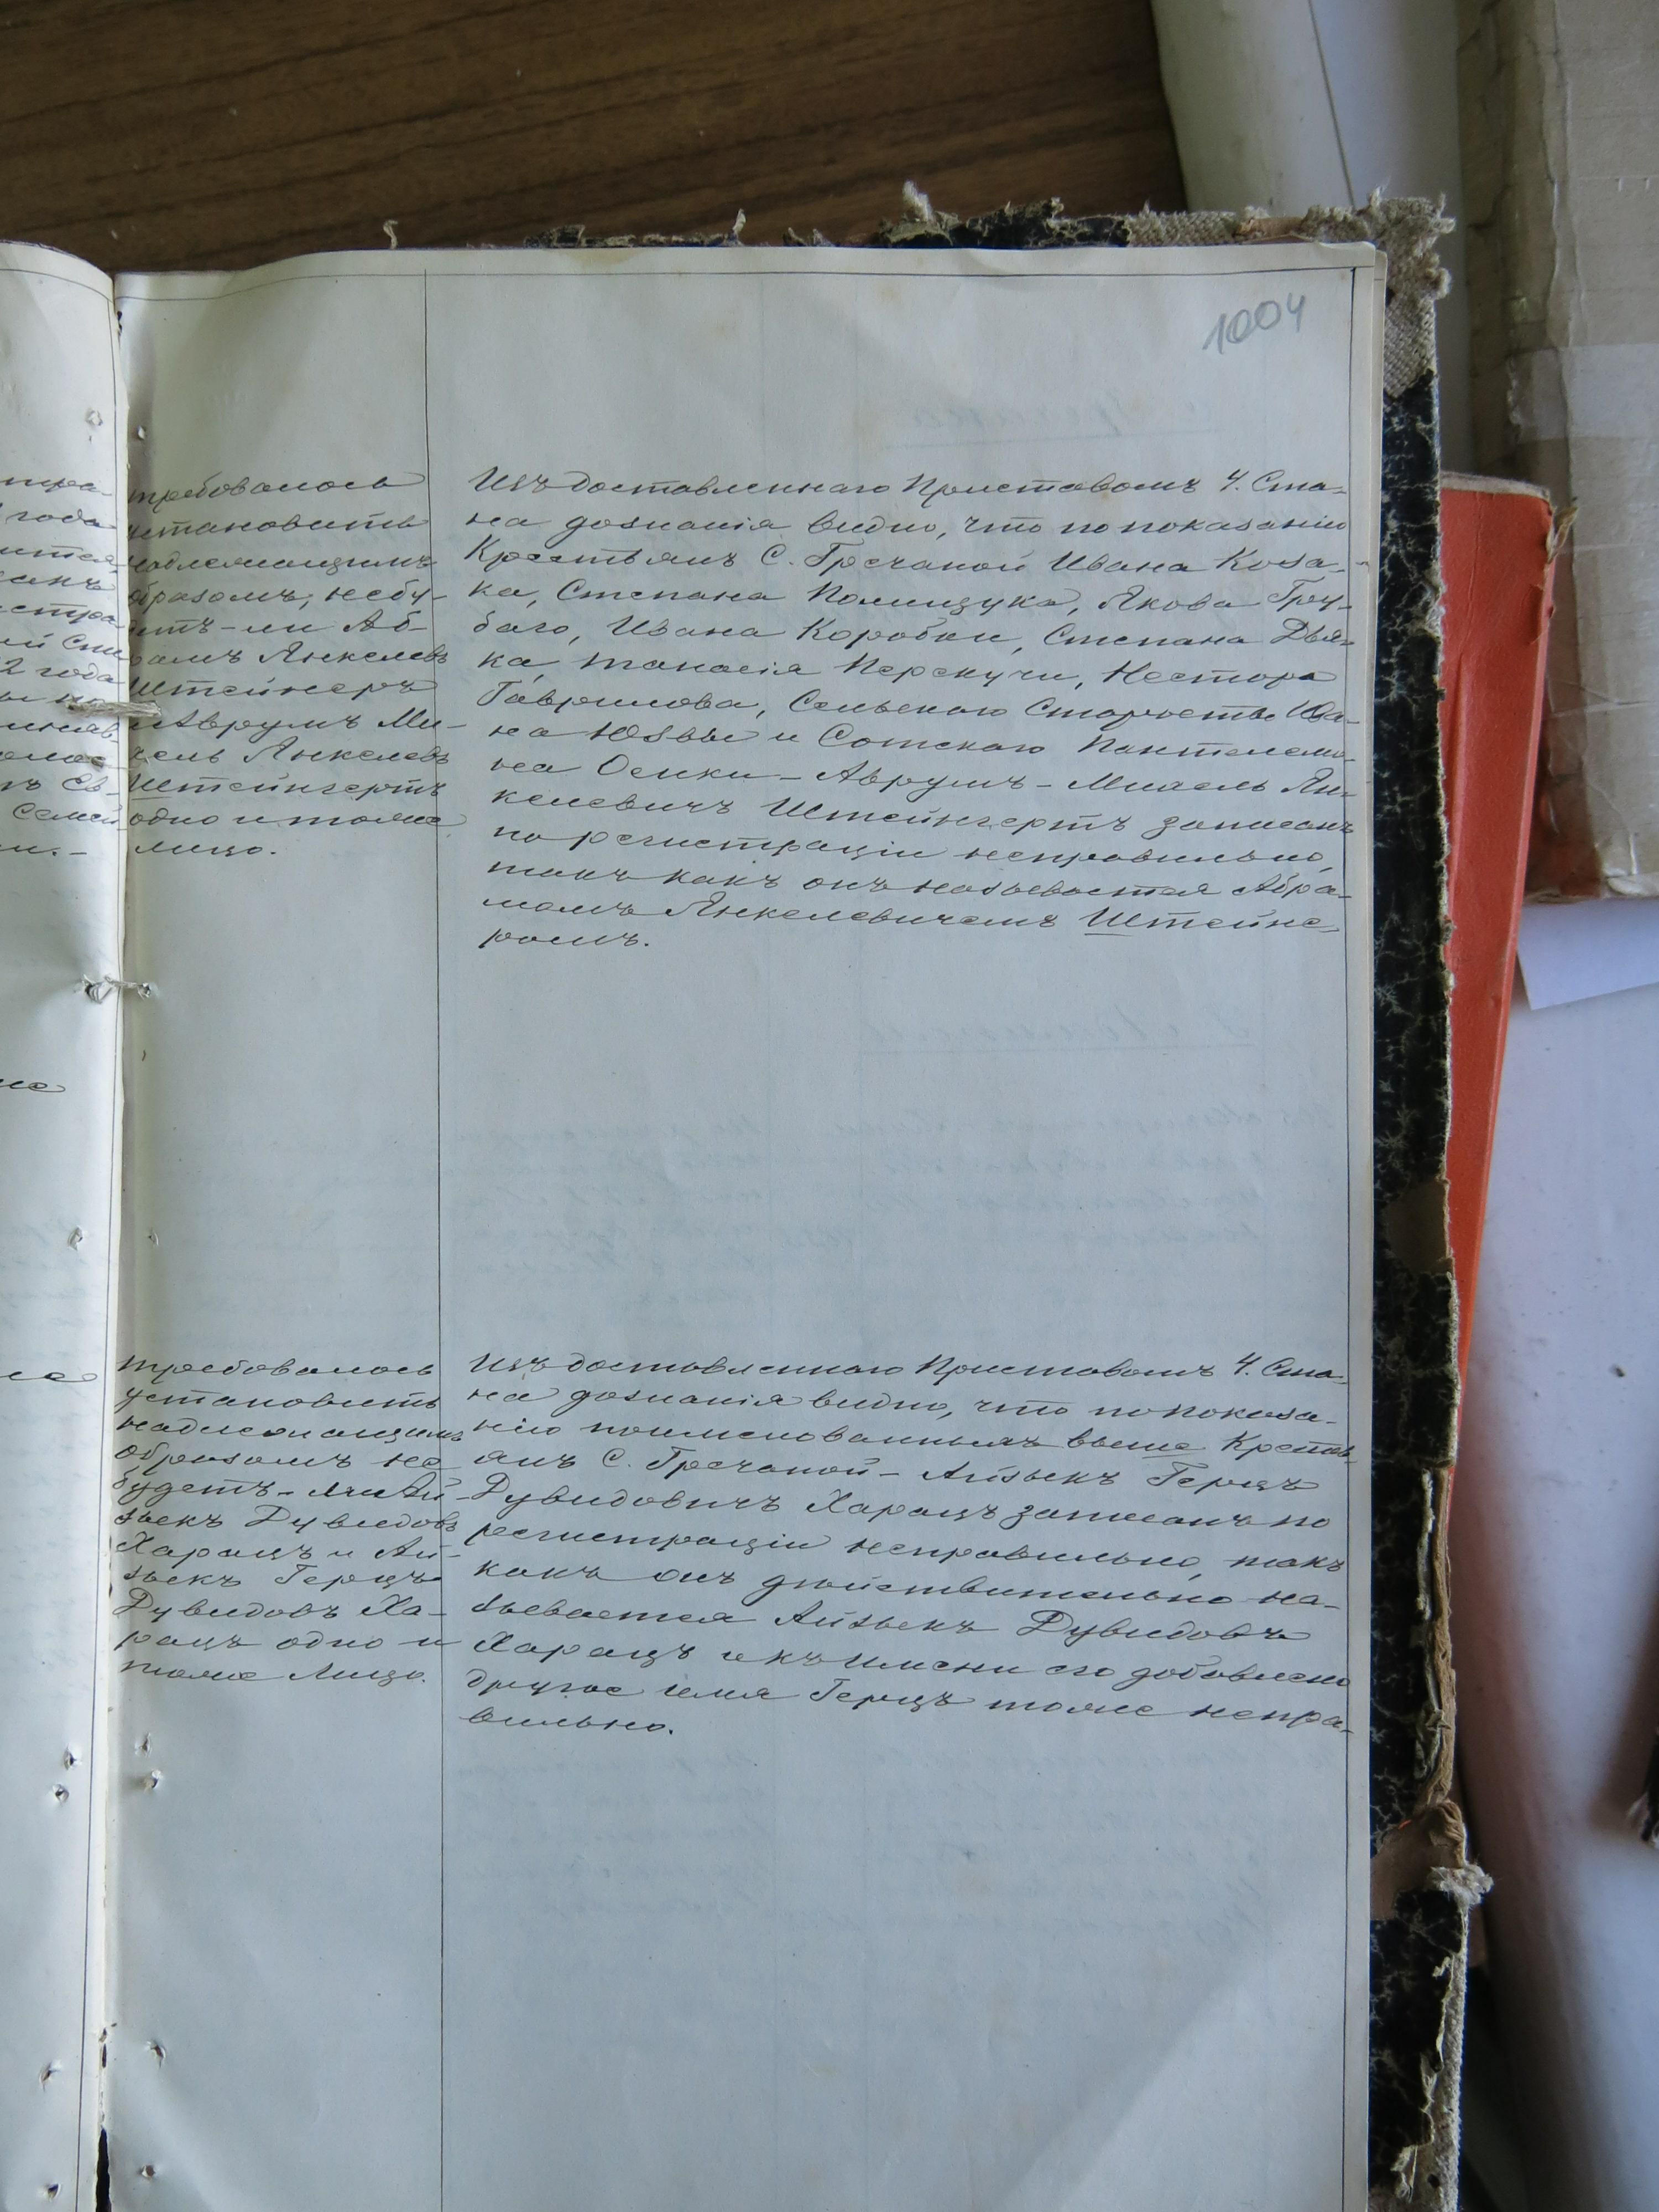 1004
требовалось
установить
надлежащимъ
образомъ, небу-
детъ-ли Аб-
рамъ Янкелевъ
Штейнеръ
и Аврумъ Ми-
хель Янкелевъ
Штейнгертъ
одно и тоже
лицо.
Изъ доставленнаго Приставомъ 4. Ста-
на дознанія видно, что по показанію
Крестьянъ С. Гречаной Ивана Коза-
ка, Степана Полищука, Якова Гру-
баго, Ивана Коробки, Степана Дья-
ка, Танасія Перекучи, Нестора
Гаврилова, Сельскаго Старосты Ива-
на Юзвы и Сотскаго Пантелемо-
на Осики - Аврумъ - Михель Ян-
келевичъ Штейнгертъ записанъ
по регистраціи неправильно,
такъ какъ онъ называется Абра-
момъ Янкелевичемъ Штейне-
ромъ.
требовалось
установить
надлежащимъ
образомъ не
будетъ-ли Ай-
зыкъ Дувидовъ
Харацъ и Ай-
зыкъ Герцъ
Дувидовъ Ха-
рацъ одно и
тоже Лицо.
Изъ доставленнаго Приставомъ 4. Ста-
на дознанія видно, что по показа-
нію поименованныхъ выше Кресть-
янъ С. Гречаной - Айзыкъ Герцъ
Дувидовичъ Харацъ записанъ по
регистраціи неправильно, такъ
какъ онъ дѣйствительно на-
зывается Айзыкъ Дувидовъ
Харацъ и къ имени его добавлено
другое имя Герцъ тоже непра-
вильно.